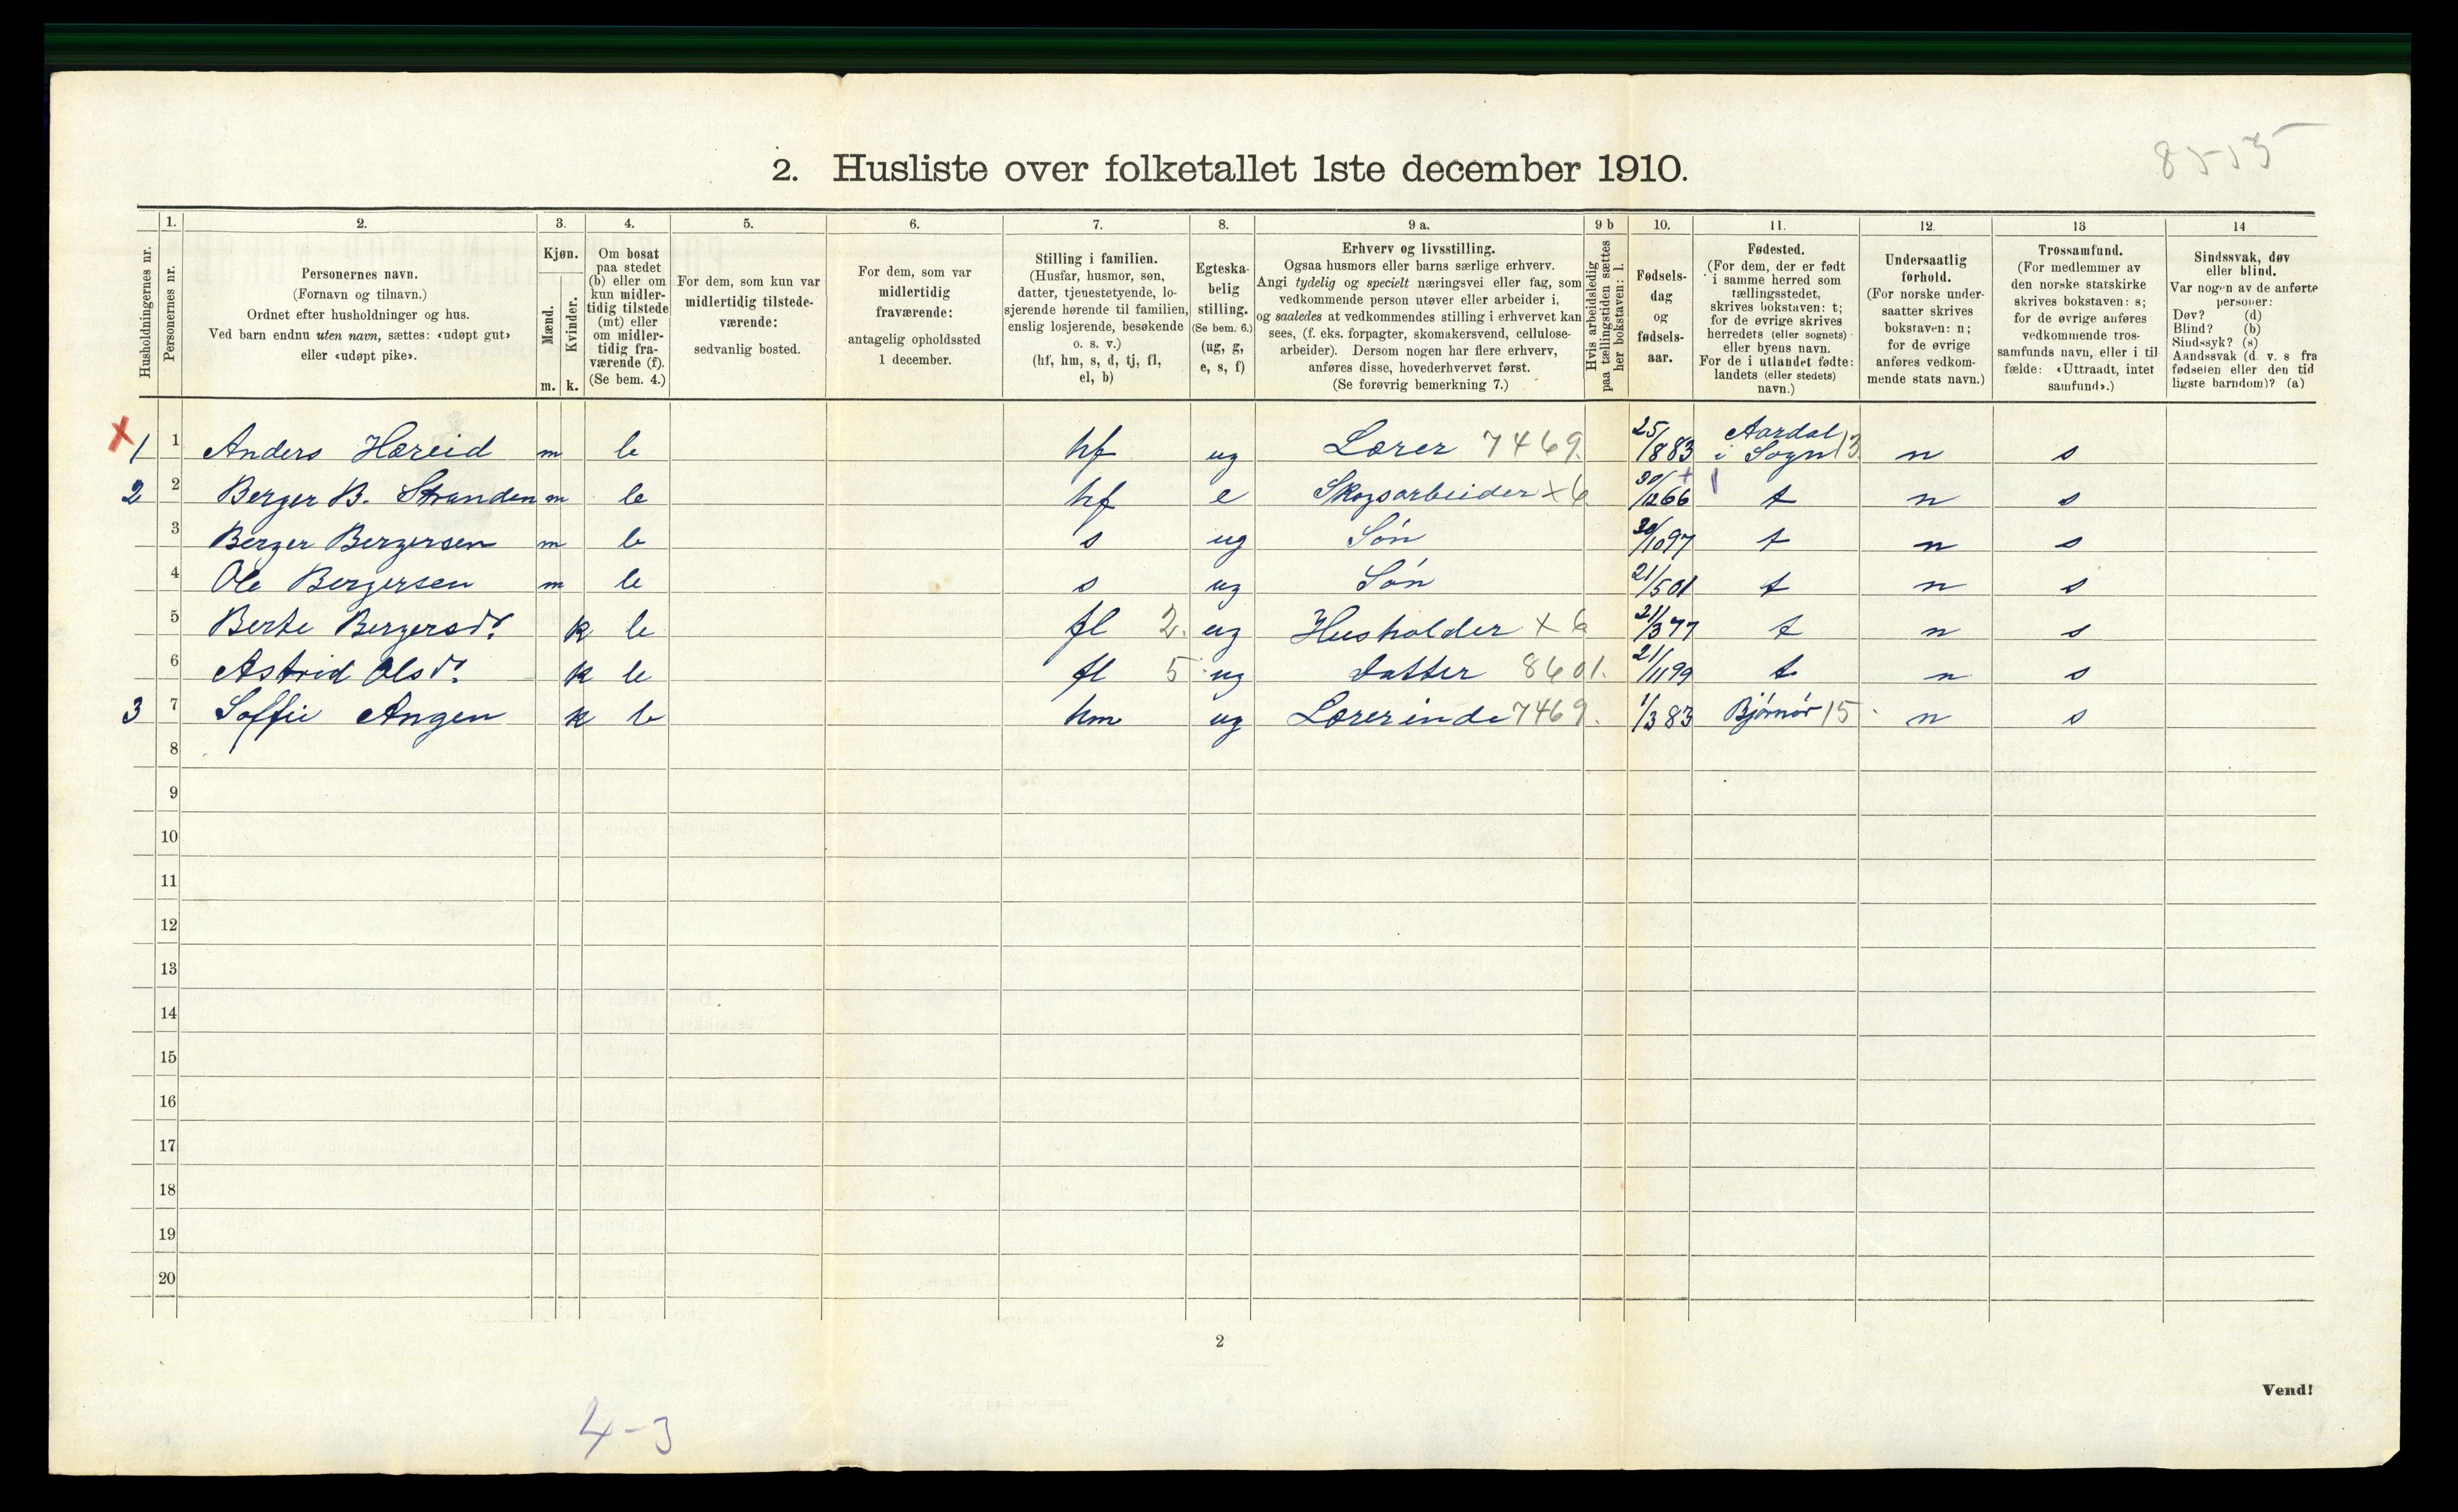 8515
2. Husliste over folketallet 1ste december 1910.
Husholdningernes nr.
1.
Personernes nr.
2.
Personernes navn.
(Fornavn og tilnavn.)
Ordnet efter husholdninger og hus.
Ved barn endnu uten navn, sættes: «udøpt gut»
eller «udøpt pike».
3.
Kjøn.
Mænd.
Kvinder.
m. k.
4.
Om bosat
paa stedet
(b) eller om
kun midler-
tidig tilstede
(mt) eller
om midler-
tidig fra-
værende (f).
(Se bem. 4.)
5.
For dem, som kun var
midlertidig tilstede-
værende:
sedvanlig bosted.
6.
For dem, som var
midlertidig
fraværende:
antagelig opholdssted
1 december.
7.
Stilling i familien.
(Husfar, husmor, søn,
datter, tjenestetyende, lo-
sjerende hørende til familien,
enslig losjerende, besøkende
o. s. v.)
(hf, hm, s, d, tj, fl,
el, b)
8.
Egteska-
belig
stilling.
(Se bem. 6.)
(ug, g,
e, s, f)
9 a.
Erhverv og livsstilling.
Ogsaa husmors eller barns særlige erhverv.
Angi tydelig og specielt næringsvei eller fag, som
vedkommende person utøver eller arbeider i,
og saaledes at vedkommendes stilling i erhvervet kan
sees, (f. eks. forpagter, skomakersvend, cellulose-
arbeider). Dersom nogen har flere erhverv,
anføres disse, hovederhvervet først.
(Se forøvrig bemerkning 7.)
9 b
Hvis arbeidsledig
paa tællingstiden sættes
her bokstaven: l.
10.
Fødsels-
dag
og
fødsels-
aar.
11.
Fødested.
(For dem, der er født
i samme herred som
tællingsstedet,
skrives bokstaven: t;
for de øvrige skrives
herredets (eller sognets)
eller byens navn.
For de i utlandet fødte:
landets (eller stedets)
navn.)
12.
Undersaatlig
forhold.
(For norske under-
saatter skrives
bokstaven: n;
for de øvrige
anføres vedkom-
mende stats navn.)
13
Trossamfund.
(For medlemmer av
den norske statskirke
skrives bokstaven: s;
for de øvrige anføres
vedkommende tros-
samfunds navn, eller i til-
fælde: «Uttraadt, intet
samfund».)
14
Sindssvak, døv
eller blind.
Var nogen av de anførte
personer:
Døv? (d)
Blind? (b)
Sindssyk? (s)
Aandssvak (d. v. s. fra
fødselen eller den tid-
ligste barndom)? (a)
x 1 1 Anders Hæreid m b hf ug Lærer 7469. 25/1883 Aardal i Sogn 13 n s
2 2 Berger B. Stranden m b hf e Skogsarbeider x 6 30/1266 t n s
3 Berger Bergersen m b s ug Søn 30/1097 t n s
4 Ole Bergersen m b s ug Søn 21/501 t n s
5 Berte Bergersdr. k b fl 2. ug Husholder x 6 21/377 t n s
6 Astrid Olsdr. k b fl 5 ug Datter 8601. 21/1199 t n s
3 7 Soffie Angen k b hm ug Lærerinde 7469. 1/383 Bjørnør 15 n s
8
9
10
11
12
13
14
15
16
17
18
19
20
2
Vend!
4-3